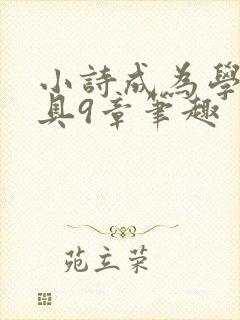 小詩成為學
具9章筆趣
苑立荣